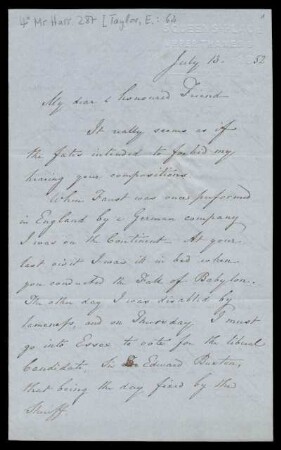 4° Ms. Hass. 287 [Taylor, E.: 64
July 13. 52
My dear & honoured Friend
It really seems as if
the fates intended to forbid my
hearing your compositions
When Faust was once performed
in England by a German company
I was on the Continent. At your
last visit I was ill in bed when
you conducted the Fall of Babylon.
The other day I was disabled by
lameness, and on Thursday I must
go into Essex to vote for the liberal
Candidate Sir Edward Buxton,
that being the day fixed by the
Sheriff.